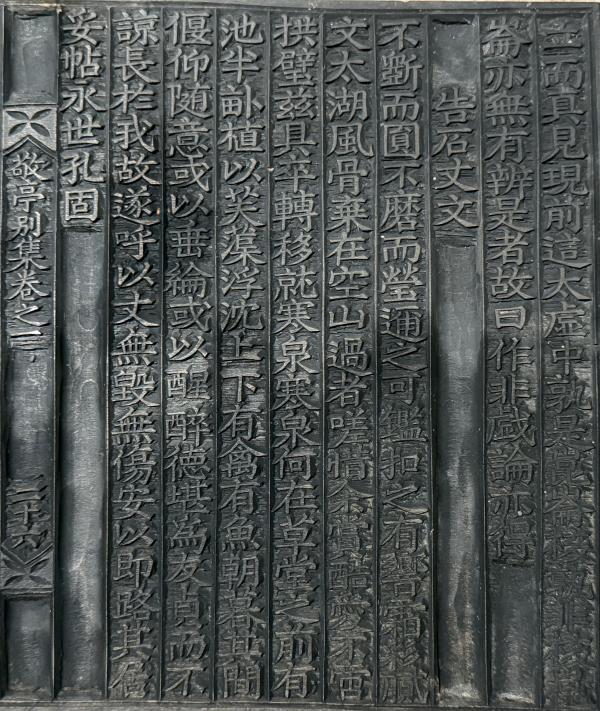 而真見現前這太虛中孰是
崙亦無有辨是者故曰作非戱論亦得
告石丈文
不斷而圓不磨而瑩邇之可鑑扣之有響霜彩
文太湖風骨棄在空山過者嗟惜余嘗酷愛不啻
拱璧玆具卒轉移就寒泉寒泉何在草堂之前有
池半畝植以芙蕖浮沈上下有禽有魚朝暮其間
偃仰随意或以垂綸或以醒醉德堪為友貞而不
諒長於我故遂呼以丈無毀無傷安以即路其居
妥帖永世孔固
敬亭別集卷之二 二十六